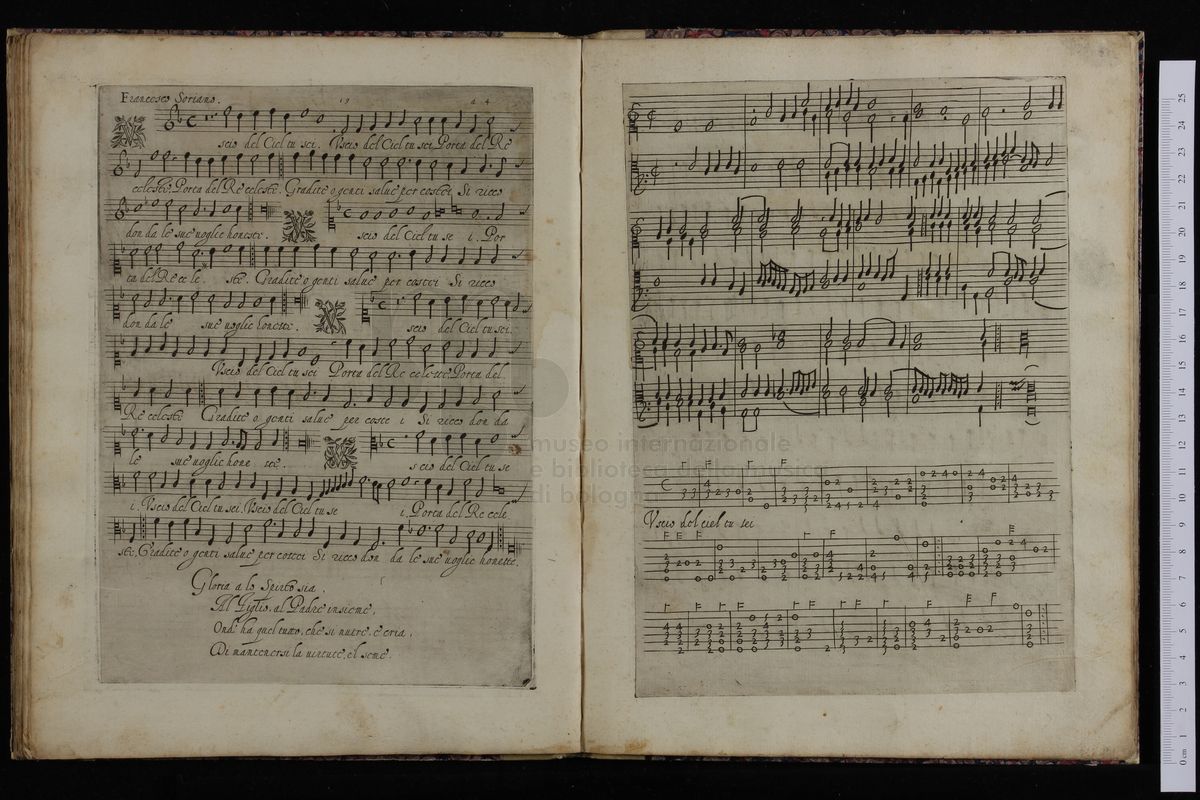 Francesco Soriano.
scio del Ciel tu sei. Vscio del Ciel tu sei Porta del Re
celeste, Porta del Re celeste. Gradite o genti salue per costei, Si ricco
don da le sue uoglie honeste.
scio del Ciel tu se i. Por
ta del Re ce le. ste. Gradite o genti salue per costei Si ricco
don da le sue uoglie honeste.
scio del Ciel tu sei.
Vscio del Ciel tu sei Porta del Re celeste, Porta del
Re celeste Gradite o genti salue per coste i Si ricco don da
le sue uoglie hone ste.
scio del Ciel tu se
i. Vscio del Ciel tu sei, Vscio del Ciel tu se i, Porta del Re cele
ste, Gradite o genti salue per costei Si ricco don da le sue uoglie honeste.
Gloria a lo Spirto sia,
Al Figlio, al Padre insieme,
Ond' ha quel tutto, che si nutre, e cria,
Di mantenersi la uirtute, el seme.
Vscio del ciel tu sei
museo internazionale
e biblioteca della musica
di bologna
0 cm 1 2 3 4 5 6 7 8 9 10 11 12 13 14 15 16 17 18 19 20 21 22 23 24 25